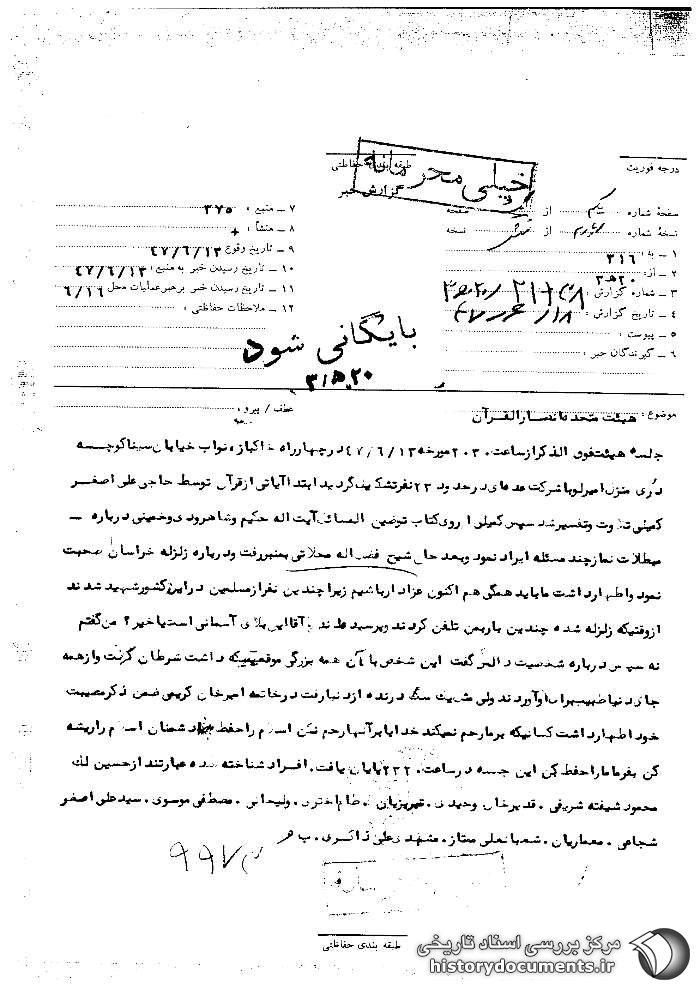 درجه فوریت
طبقه بندی حفاظتی
خیلی محرمانه
گزارش خبر
صفحهٔ شماره یکم از صفحه
نسخهٔ شماره از نسخه
۱ ـ به : ۳۱۶
۲ ـ از : ۲۰ ه ۳
۳ ـ شماره گزارش :
۴ ـ تاریخ گزارش :
۵ ـ پیوست :
۶ ـ گیرندگان خبر :
۷ ـ منبع : ۳۷۵
۸ ـ منشأ :
۹ ـ تاریخ وقوع ۴۷/۶/۱۳
۱۰ ـ تاریخ رسیدن خبر به منبع : ۴۷/۶/۱۳
۱۱ ـ تاریخ رسیدن خبر برهبر عملیات محل ۶/۱۶
۱۲ ـ ملاحظات حفاظتی :
بایگانی شود
موضوع : هیئت متحد انصار القرآن
عطف / پیرو :
جلسه هیئت فوق الذکر از ساعت ۲۰۳۰ مورخه ۴۷/۶/۱۳ در چهارراه خاکباز نواب خیابان سینا کوچه
دری منزل امیرلو با شرکت عده‌ای در حدود ۲۳ نفر تشکیل گردید ابتدا آیاتی از قرآن توسط حاجی علی اصغر
کمیلی تلاوت و تفسیر شد سپس کمیلی از روی کتاب توضیح المسائل آیت اله حکیم و شاهرودی و خمینی درباره ـ
مبطلات نماز چند مسئله ایراد نمود و بعد حال شیخ فضل اله محلاتی بمنبر رفت و درباره زلزله خراسان صحبت
نمود و اظهار داشت ما باید همگی هم اکنون عزادار باشیم زیرا چندین نفر از مسلمین در این کشور شهید شدند
از وقتیکه زلزله شده چندین بار بمن تلفن کردند و پرسیده‌اند آقا این بلای آسمانی است یا خیر ؟ من گفتم
نه سپس درباره شخصیت دالس گفت این شخص با آن همه بزرگی موقعیتیکه داشت سرطان گرفت و از همه
جای دنیا طبیب برایش آوردند ولی مثل یک سگ درنده از دنیا رفت در خاتمه امیرخان کریمی ضمن ذکر مصیبت
خود اظهار داشت کسانیکه بر ما رحم نمیکند خدایا بر آنها رحم نکن اسلام را حفظ دشمنان اسلام را ریشه
کن بفرما ما را حفظ کن این جلسه در ساعت ۲۲۳۰ پایان یافت . افراد شناخته شده عبارتند از حسین لک
محمود شیفته شریفی . قدیرخان وحیدی . تبریزیان . اختری . ولیخانی . مصطفی موسوی . سید علی اصغر
شجاعی . معماریان . شعبانعلی ممتاز . مشهدی علی ذاکری .
طبقه بندی حفاظتی
مرکز بررسی اسناد تاریخی
historydocuments.ir